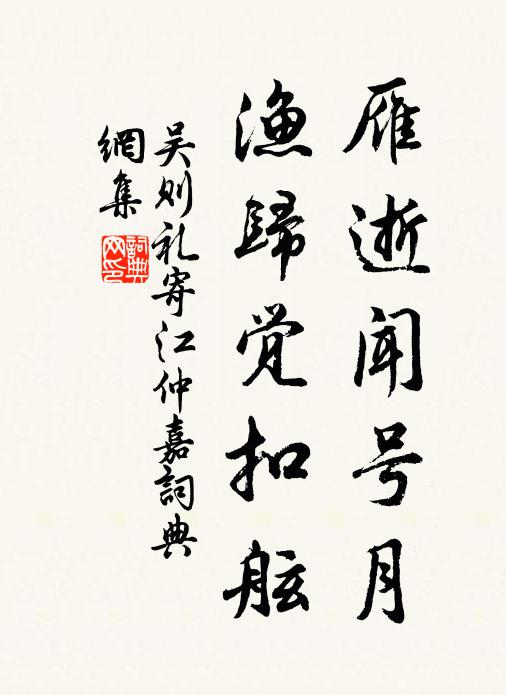 雁逝闻号月
渔歸觉扣舷
吴则礼寄江仲嘉詞典
網集
詞典网印